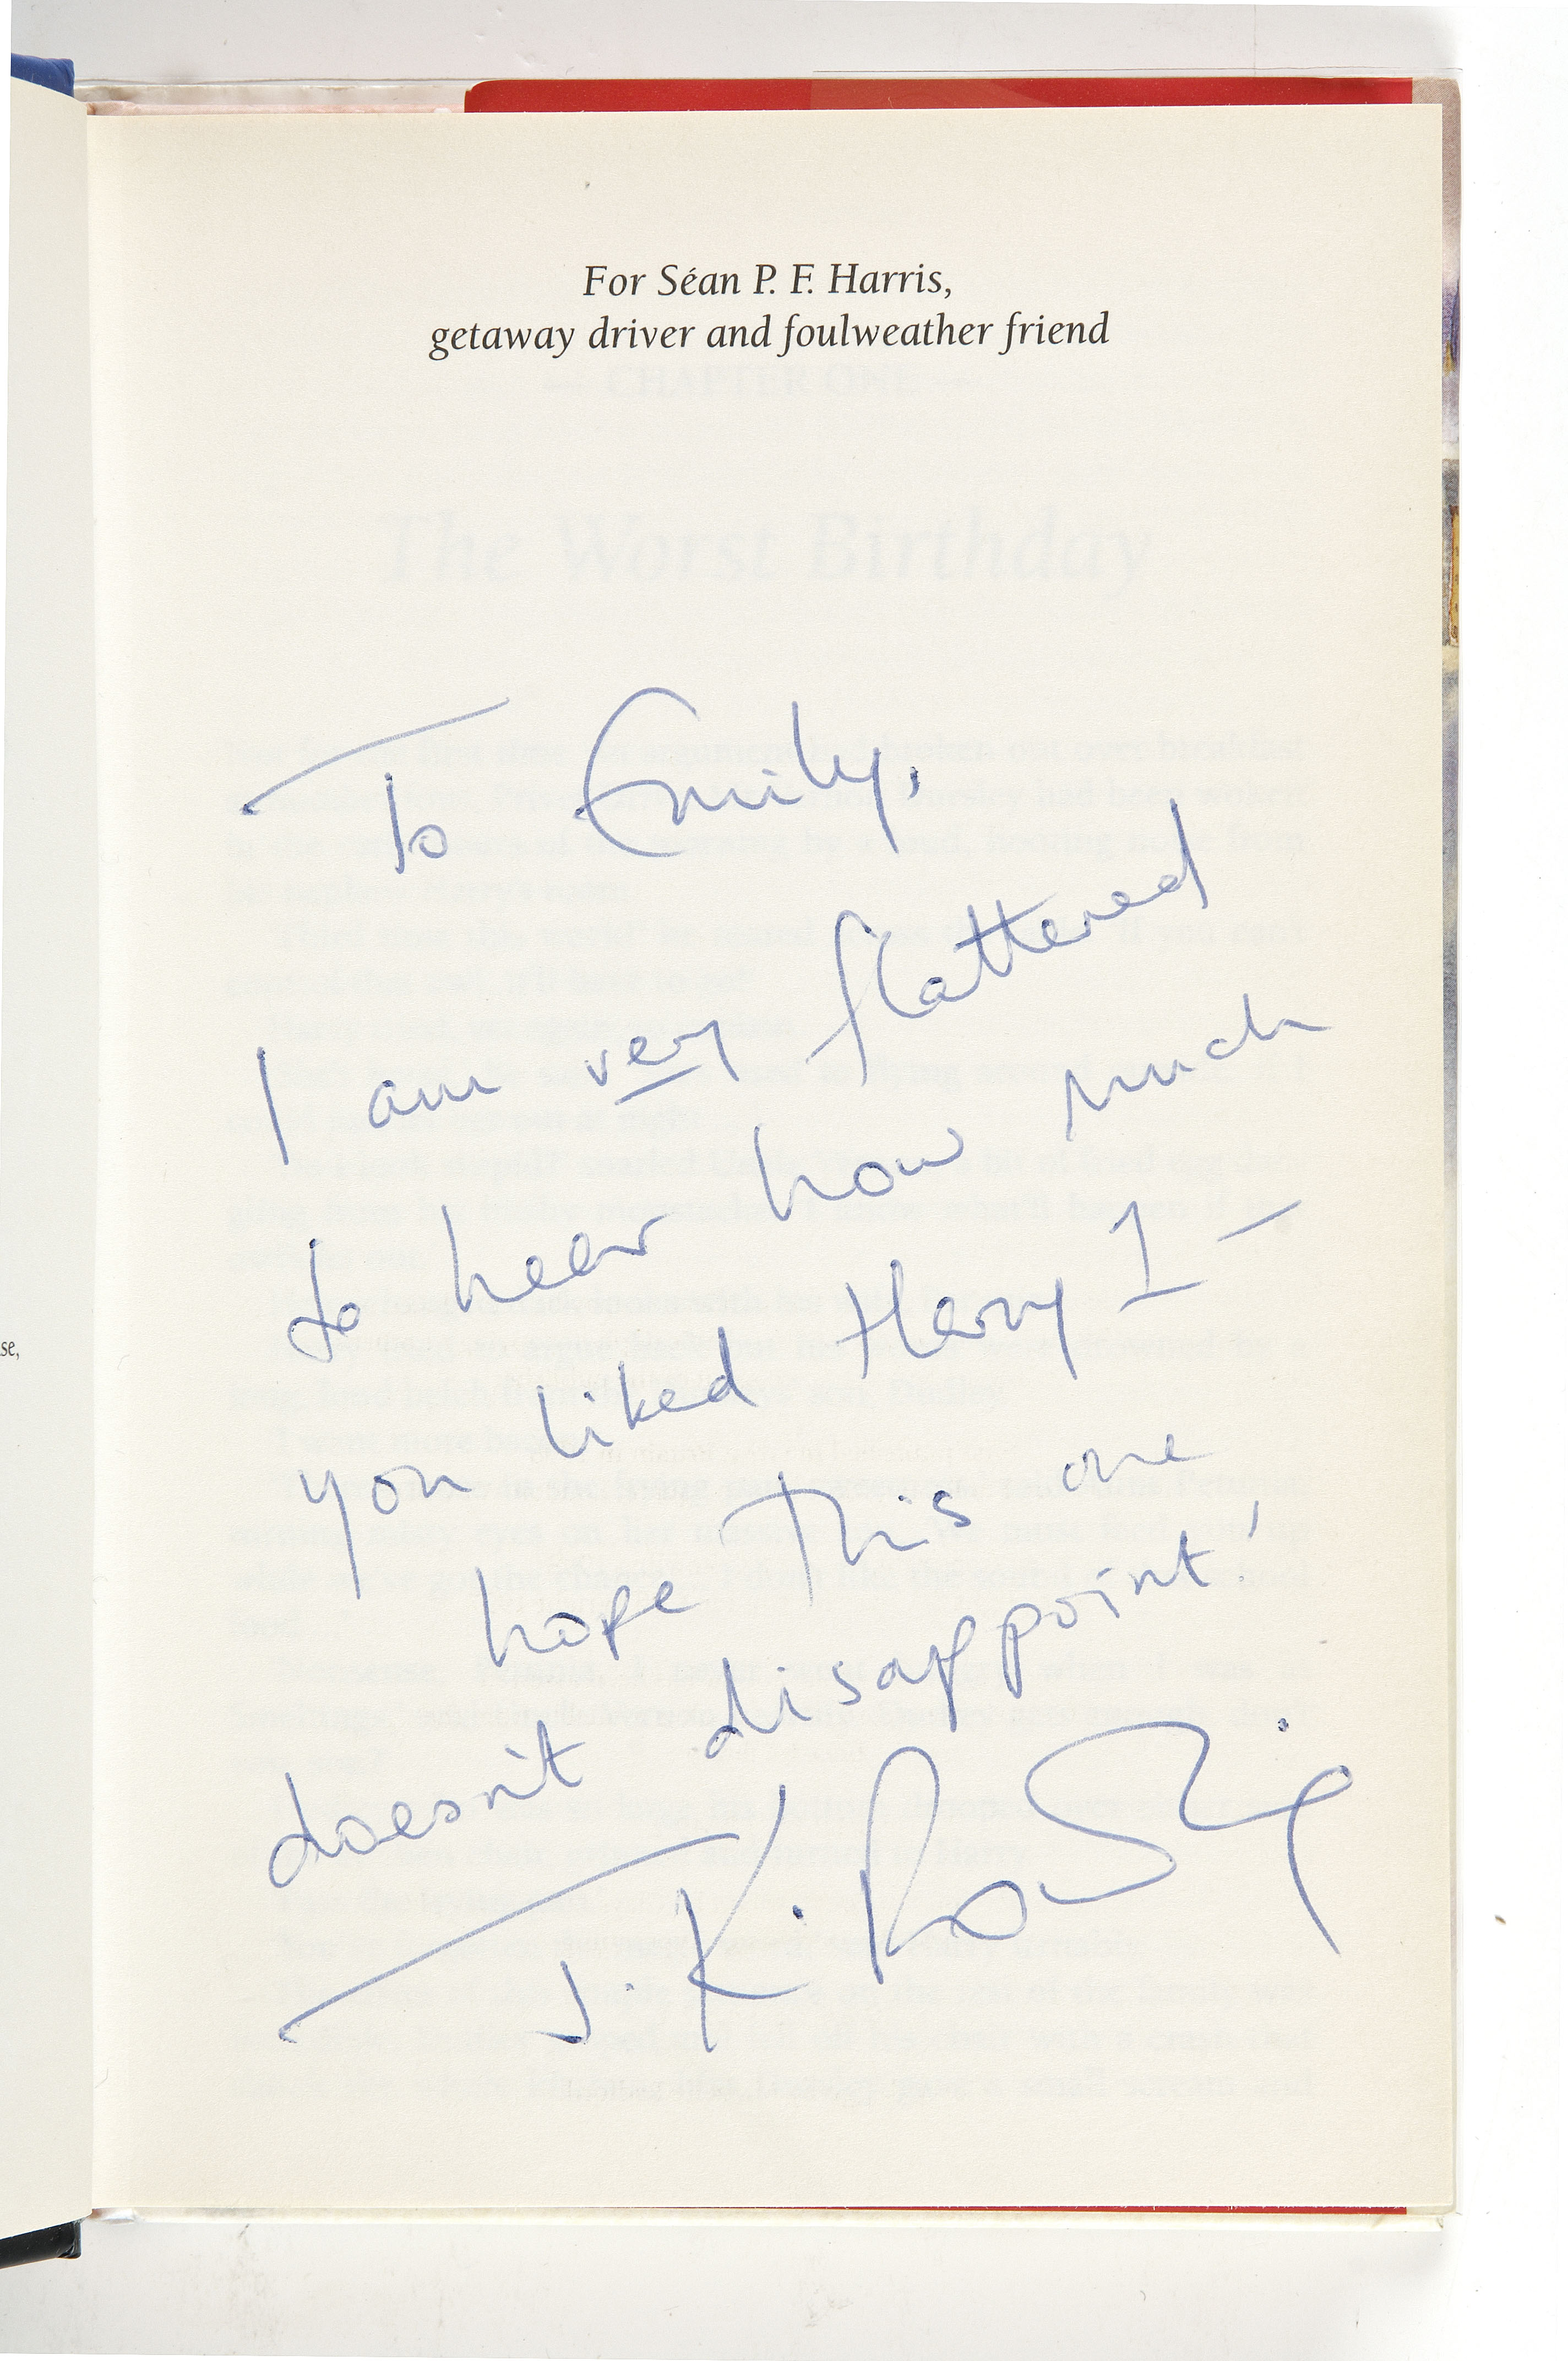 For Séan P. F. Harris,
getaway driver and foulweather friend
CHAPTER ONE
The Worst Birthday
To Emily,
I am very flattered
to hear how much
you liked Harry 1 –
hope this one
doesn't disappoint!
J. K. Rowling
se,